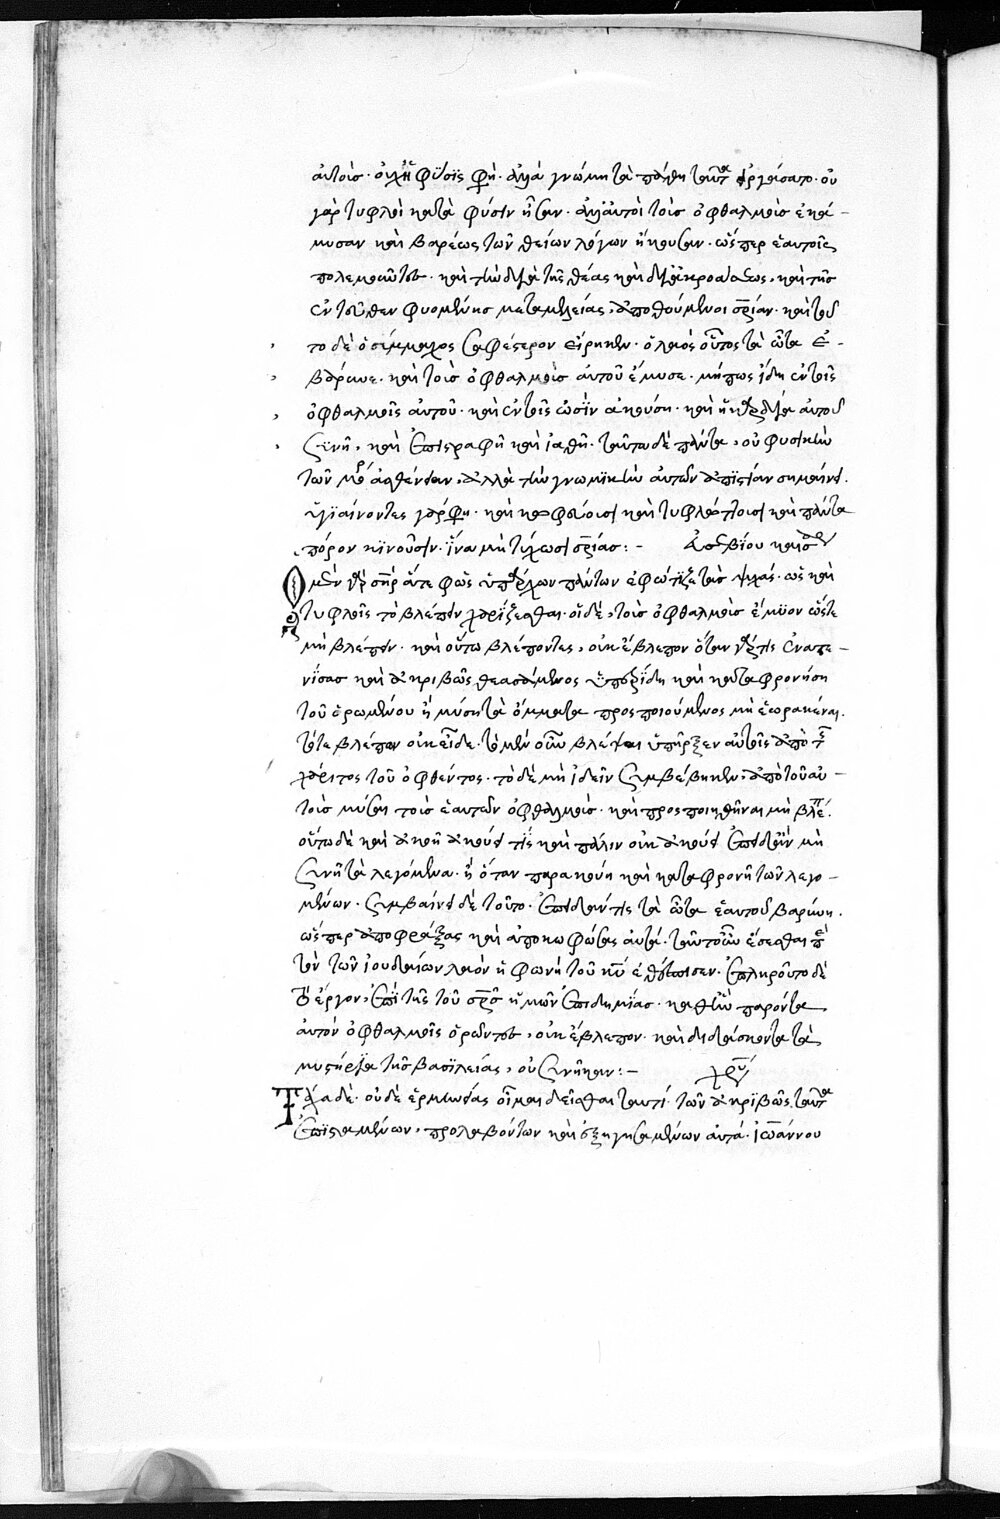 αὐτοῖς· οὐχ ἡ φύσις φη· ἀλλὰ γνώμη τὰ πάθη ταῦτα εἰργάσατο· οὐ
γὰρ τυφλοὶ κατὰ φύσιν ἦσαν· ἀλλ' αὐτοὶ τοὺς ὀφθαλμοὺς ἐκά-
μυσαν καὶ βαρέως τῶν θείων λόγων ἤκουσαν· ὥσπερ ἑαυτοῖς
πολεμοῦντες· καὶ τὴν διὰ τῆς θέας καὶ δι' ἀκροάσεως, καὶ τῆς
ἐντεῦθεν φυομένης μεταμελείας, ἀποθούμενοι σρίαν· καὶ τοῦ
το δὲ ὁ σύμμαχος σαφέστερον εἴρηκεν· ὁ λαὸς οὗτος τὰ ὦτα ἐ-
βάρυνε· καὶ τοὺς ὀφθαλμοὺς αὐτοῦ ἔμυσε· μήπως ἴδη ἐν τοῖς
ὀφθαλμοῖς αὐτοῦ· καὶ ἐν τοῖς ὠσὶν ἀκούση· καὶ ἡ καρδία αὐτοῦ
συνῆ, καὶ ἐπιστραφῆ καὶ ἰαθῆ· ταῦτα δὲ πάντα, οὐ φυσικὴν
τῶν μορ ἀσθένειαν, ἀλλὰ τὴν γνωμικὴν αὐτῶν ἀπιστίαν σημαίνει·
ὑγιαίνοντες γάρ φη· καὶ καὶ τυφλώττουσι καὶ πάντα
πόρον κινοῦσιν· ἵνα μὴ τύχωσι σρίας:- Εὐσεβίου καισ
Ὁ μὲν γὰρ σὴρ ἅτε φῶς ὑπάρχων πάντων ἐφώτιζε τὰς ψυχάς· ὡς καὶ
τυφλοῖς τὸ βλέπειν χαρίζεσθαι· οἱ δὲ, τοὺς ὀφθαλμοὺς ἔμυον ὥστε
μὴ βλέπειν· καὶ οὕτω βλέποντες, οὐκ ἔβλεπον ὅταν γάρ τις ἐνατε-
νίσας καὶ ἀκριβῶς θεασάμενος ὑπερίδη καὶ καταφρονήση
τοῦ ὁρωμένου ἢ μύση τὰ ὄμματα προσποιούμενος μὴ ἑωρακέναι·
τότε βλέπων οὐκ εἶδε· τὸ μὲν οὖν βλέψαι ὑπῆρξεν αὐτοῖς ἀπὸ τῆς
χάριτος τοῦ ὀφθέντος· τὸ δὲ μὴ ἰδεῖν συμβέβηκεν, ἀπὸ τοῦ αὐ-
τοὺς μύσαι τοὺς ἑαυτῶν ὀφθαλμούς· καὶ προσποιηθῆναι μὴ βλέπ·
οὕτω δὲ καὶ ἀκοῆ ἀκούει τις καὶ πάλιν οὐκ ἀκούει ἐπειδὰν μὴ
συνῆ τὰ λεγόμενα· ἢ ὅταν παρακούη καὶ καταφρονῆ τῶν λεγο-
μένων· συμβαίνει δὲ τοῦτο· ἐπειδάν τις τὰ ὦτα ἑαυτοῦ βαρύνη·
ὥσπερ ἀποφράξας καὶ ἀποκωφώσας αὐτά· ταῦτ' οὖν ἔσεσθαι π
τὸν τῶν ἰουδαίων λαὸν ἡ φωνὴ τοῦ κυ ἐθέσπισεν· ἐπληροῦτο δὲ
τὸ ἔργον, ἐπὶ τῆς τοῦ σρσ ἡμῶν ἐπιδημίας· καθ' ἣν παρόντα
αὐτὸν ὀφθαλμοῖς ὁρῶντες, οὐκ ἔβλεπον· καὶ διδάσκοντα τὰ
μυστήρια τῆς βασιλείας, οὐ συνῆκαν:-
Τάχα δὲ· οὐδὲ ἑρμηνείας οἶμαι δεῖσθαι ταυτί· τῶν ἀκριβῶς ταῦτα
ἐπισταμένων, προλαβόντων καὶ ἐξηγησαμένων αὐτά· ἰωάννου